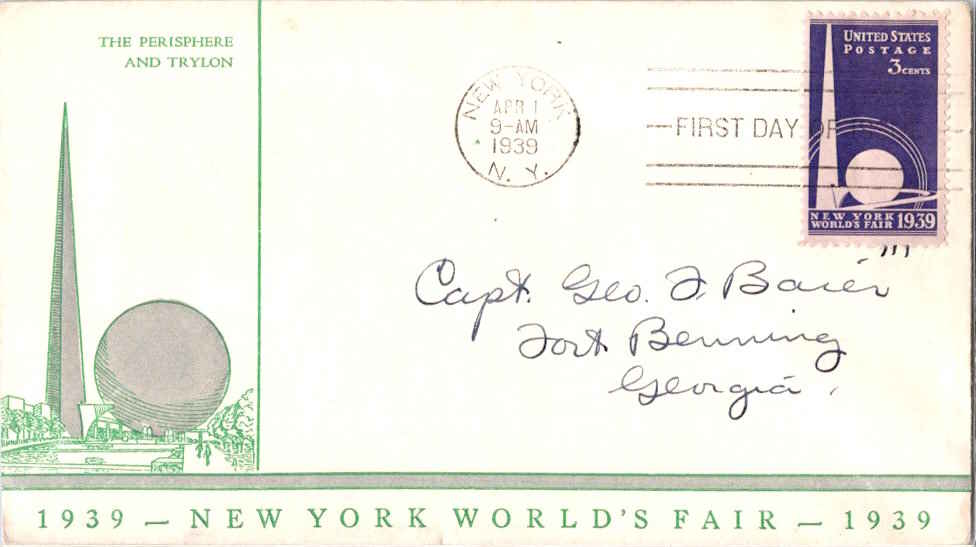 THE PERISPHERE
AND TRYLON
NEW YORK
APR 1
9-AM
1939
N. Y.
FIRST DAY OF
UNITED STATES
POSTAGE
3 CENTS
NEW YORK
WORLD'S FAIR 1939
Capt. Geo. F. Baier III
Fort Benning
Georgia.
1939 — NEW YORK WORLD'S FAIR — 1939